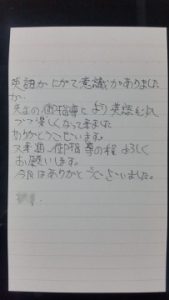 英語かにがて意識がありました
が、
先生の御指導により英語も少し
づつ楽しくなって来ました
ありがとうございます。
又来週、御指導の程よろしく
お願いします。
今日はありがとうございました。